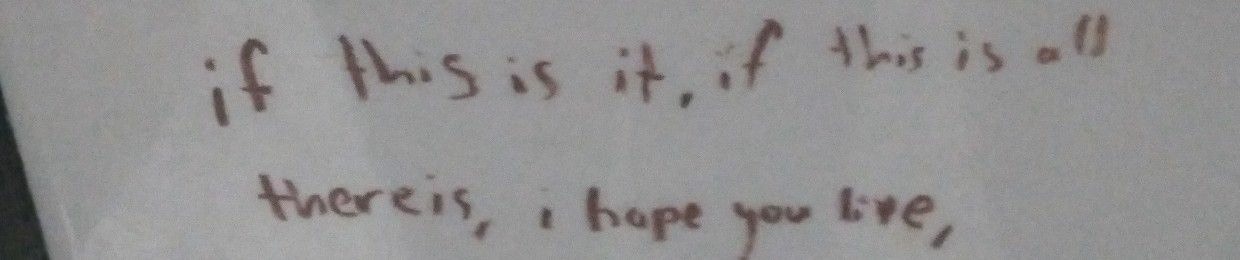 if this is it, if this is all
there is, i hope you live,